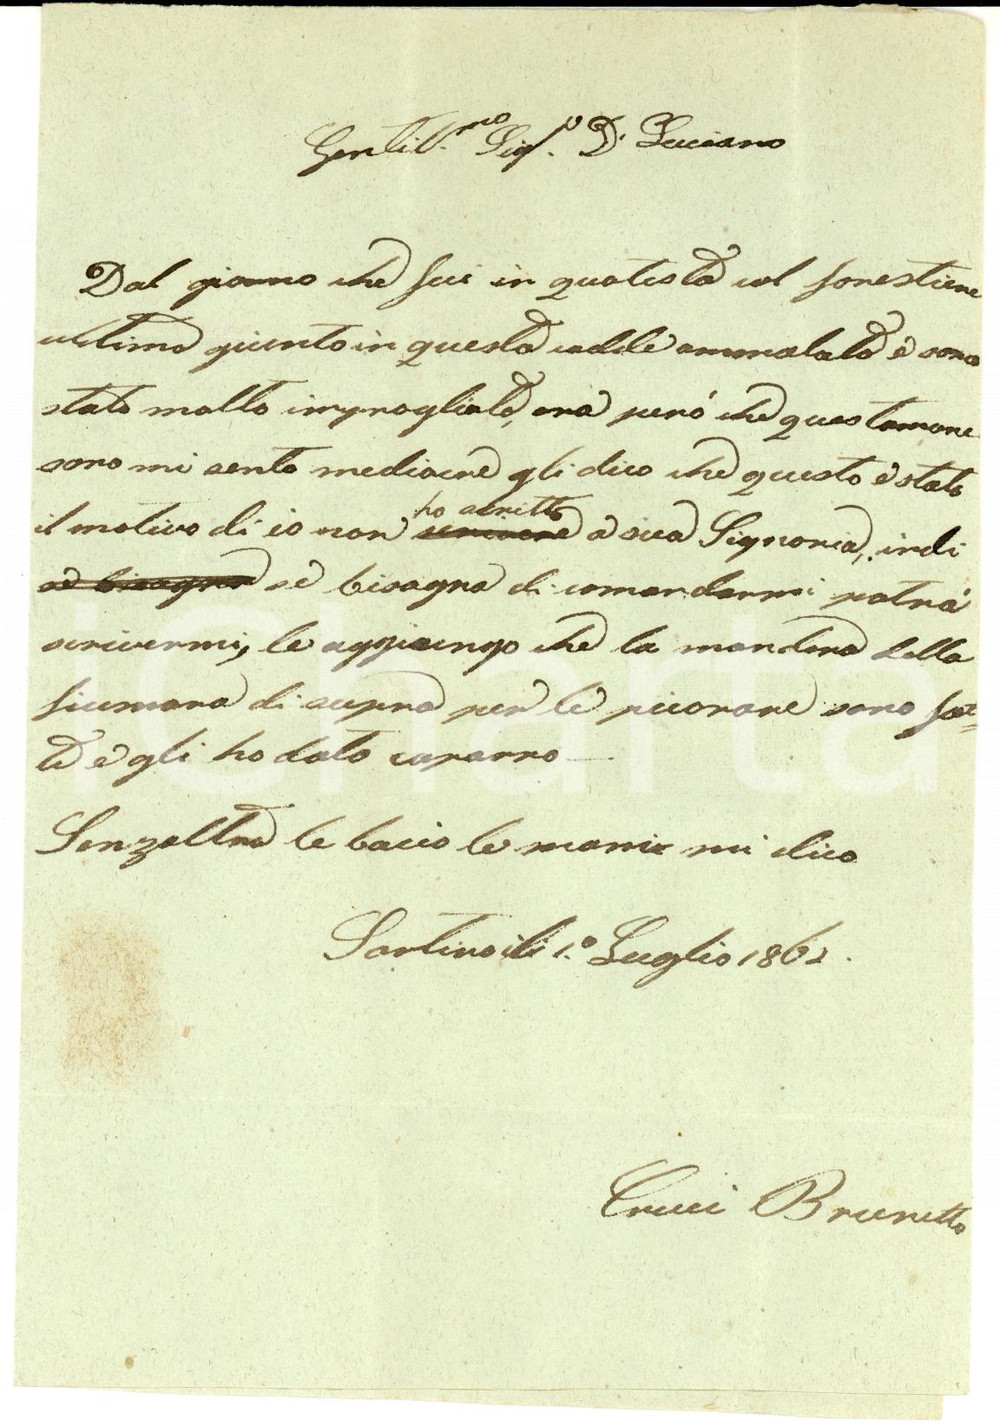 Gentil.mo Sig.o D. Luciano
Dal giorno che fui in quatesta col forestiere
ultimo giunto in questa caddé ammalato é sono
stato molto impragliato, ora peró che quest'amore
sono mi sento mediocre gli dico che questo é stato
ho scritto
il motivo di io non scrivere a sua Signoria, indi
se bisogna se bisogna di comandarmi potrá
scrivermi, le aggiungo che la mandra della
fiumara di supra per le picorare sono fat=
te e gli ho dato caparro
Senzaltro le bacio le mani mi dico
Sortino li 1.o Luglio 1862.
Cruci Brunetto
Charta